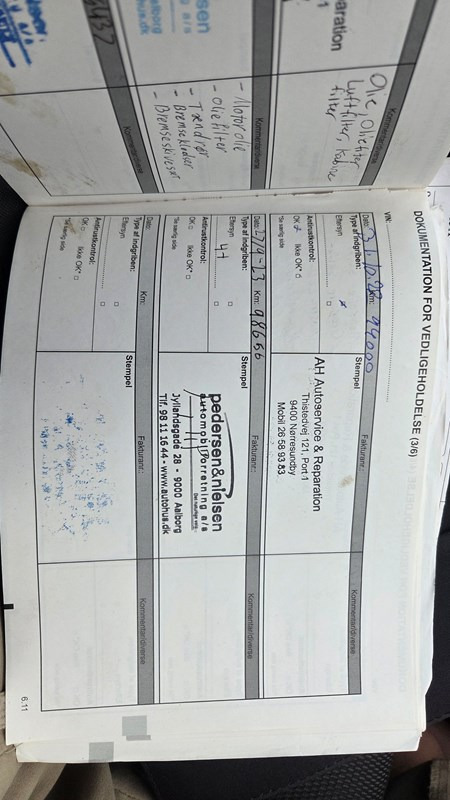 aration
Kommentar/diverse
Olie, Oliefilter
Luftfilter, Kabine
filter
Kommentar/diverse
- Motorolie
- oliefilter
- Tændrør
- Bremseklodser
- Bremseskiver
Kommentar/diverse
elsen
g a/s
alborg
hus.dk
DOKUMENTATION FOR VEDLIGEHOLDELSE (3/6)
VIN:
Dato: 31.10.22 Km: 94000 Fakturanr.: Kommentar/diverse
Type af indgriben: Stempel
Eftersyn x
AH Autoservice & Reparation
Thistedvej 121, Port 1
9400 Nørresundby
Mobil 26 58 93 83
Antirustkontrol:
OK Ikke OK*
*Se særlig side
Dato: 27/9-23 Km: 98656 Fakturanr.: Kommentar/diverse
Type af indgriben: Stempel
Eftersyn
pedersen&nielsen
automobilforretning a/s
Det naturlige valg
Jyllandsgade 28 - 9000 Aalborg
Tlf. 98 11 16 44 - www.autohus.dk
Antirustkontrol:
OK Ikke OK*
*Se særlig side
Dato: Km: Fakturanr.: Kommentar/diverse
Type af indgriben: Stempel
Eftersyn
Antirustkontrol:
OK Ikke OK*
*Se særlig side
6.11